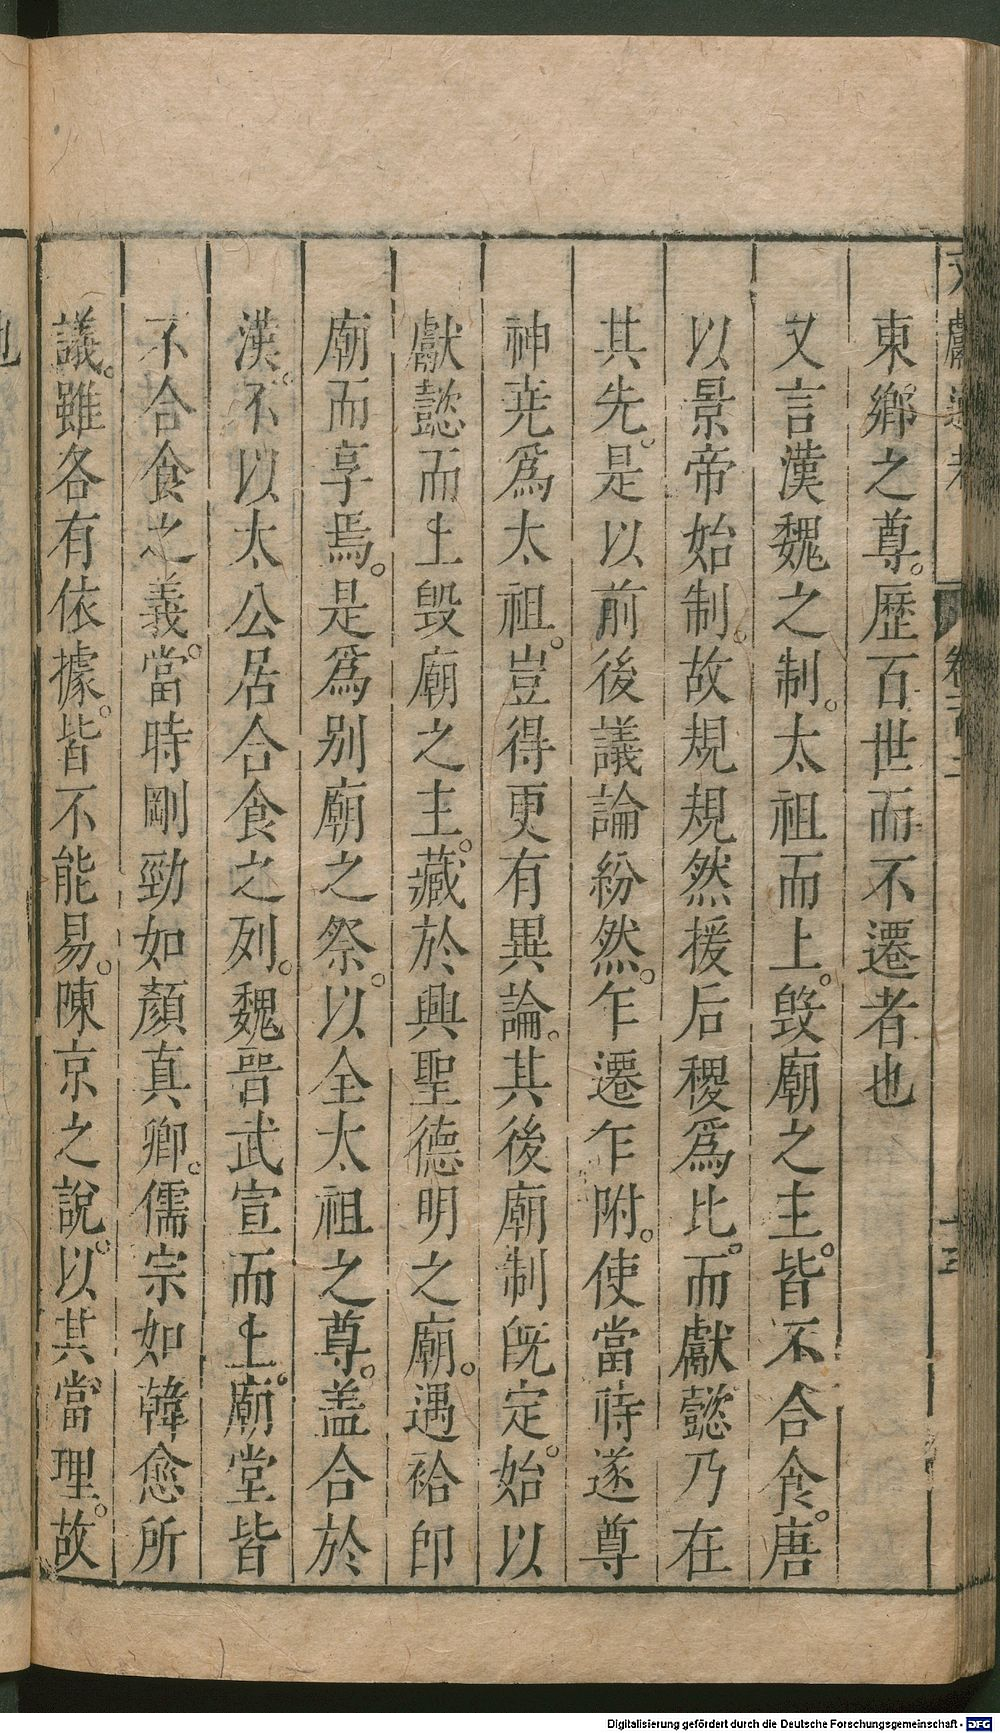 東鄉之尊。歷百世而不遷者也
又言漢魏之制。太祖而上。毁廟之主。皆不合食。唐
以景帝始制。故規規然援后稷爲比。而獻懿乃在
其先。是以前後議論紛然。乍遷乍附。使當時遂尊
神尭爲太祖。豈得更有異論。其後廟制旣定。始以
獻懿而上毁廟之主。藏於興聖德明之廟。遇祫即
廟而享焉。是爲别廟之祭。以全太祖之尊。盖合於
漢。不以太公居合食之列。魏晋武宣而上。廟堂皆
不合食之義。當時剛勁如顏真卿。儒宗如韓愈所
議。雖各有依據。皆不能易。陳京之說。以其當理。故
Digitalisierung gefördert durch die Deutsche Forschungsgemeinschaft - DFG